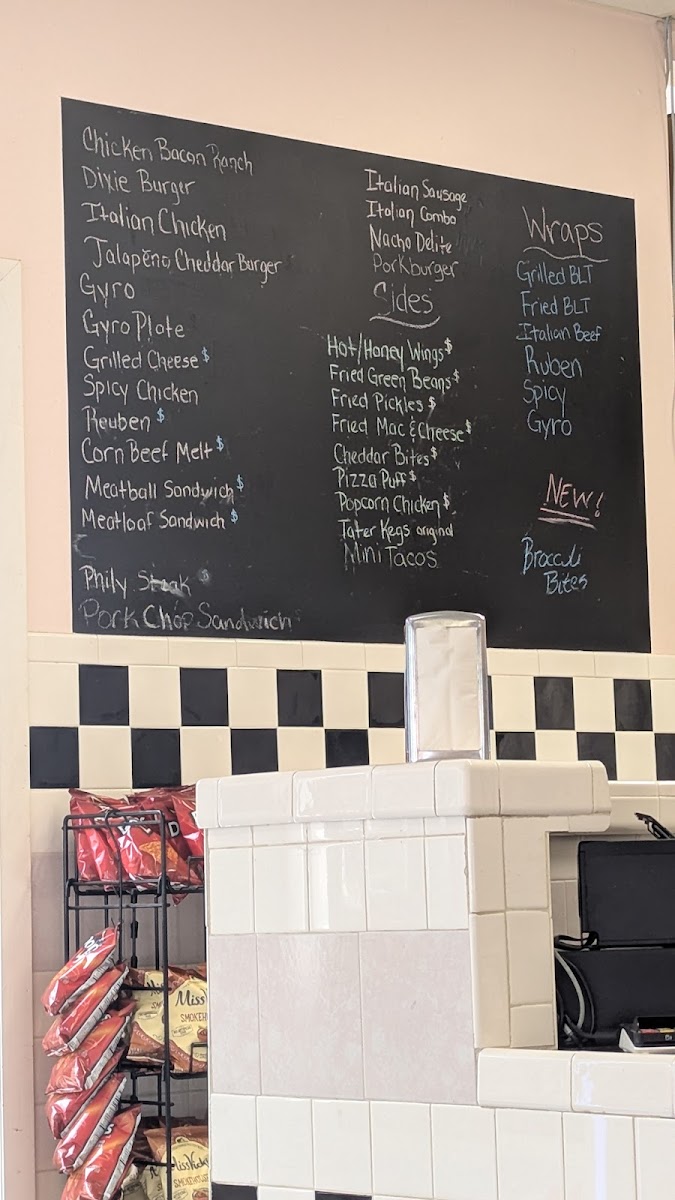 Chicken Bacon Ranch
Dixie Burger
Italian Chicken
Jalapeño Cheddar Burger
Gyro
Gyro Plate
Grilled Cheese $
Spicy Chicken
Reuben $
Corn Beef Melt $
Meatball Sandwich $
Meatloaf Sandwich $
Phily Steak $
Pork Chop Sandwich
Italian Sausage
Italian Combo
Nacho Delite
Porkburger
Sides
Hot/Honey Wings $
Fried Green Beans $
Fried Pickles $
Fried Mac & Cheese $
Cheddar Bites $
Pizza Puff $
Popcorn Chicken $
Tater Kegs original
Mini Tacos
Wraps
Grilled BLT
Fried BLT
Italian Beef
Ruben
Spicy
Gyro
NEW!
Broccoli
Bites
Miss